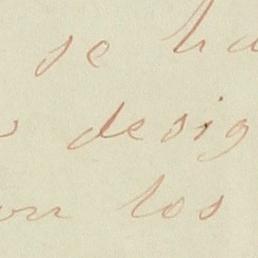 se ha
desig
on los